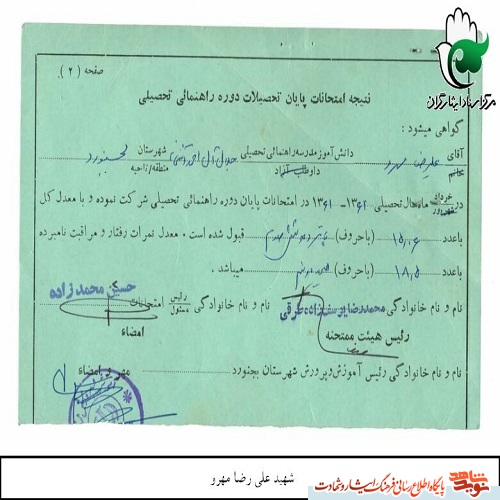 مرکز اسناد ایثارگران
صفحه (۲)
نتیجه امتحانات پایان تحصیلات دوره راهنمائی تحصیلی
گواهی میشود:
آقای علیرضا مهرو دانش‌آموز مدرسه راهنمائی تحصیلی جلال آل احمد شهرستان بجنورد
خانم داوطلب آزاد منطقه/ناحیه
در خرداد ماه سال تحصیلی ۱۳۶۲-۱۳۶۱ در امتحانات پایان دوره راهنمائی تحصیلی شرکت نموده و با معدل کل
شهریور
باعدد ۱۵/۰۶ (باحروف) پانزده و شش صدم قبول شده است. معدل نمرات رفتار و مراقبت نامبرده
باعدد ۱۸/۵ (باحروف) هیجده و نیم میباشد.
نام و نام خانوادگی محمدرضا یوسف‌زاده عرقی نام و نام خانوادگی رئیس امتحانات حسین محمدزاده
مسئول
رئیس هیئت ممتحنه امضاء
نام و نام خانوادگی رئیس آموزش و پرورش شهرستان بجنورد مهر و امضاء
شهید علی رضا مهرو
نوید شاهد
پایگاه اطلاع رسانی فرهنگ ایثار و شهادت